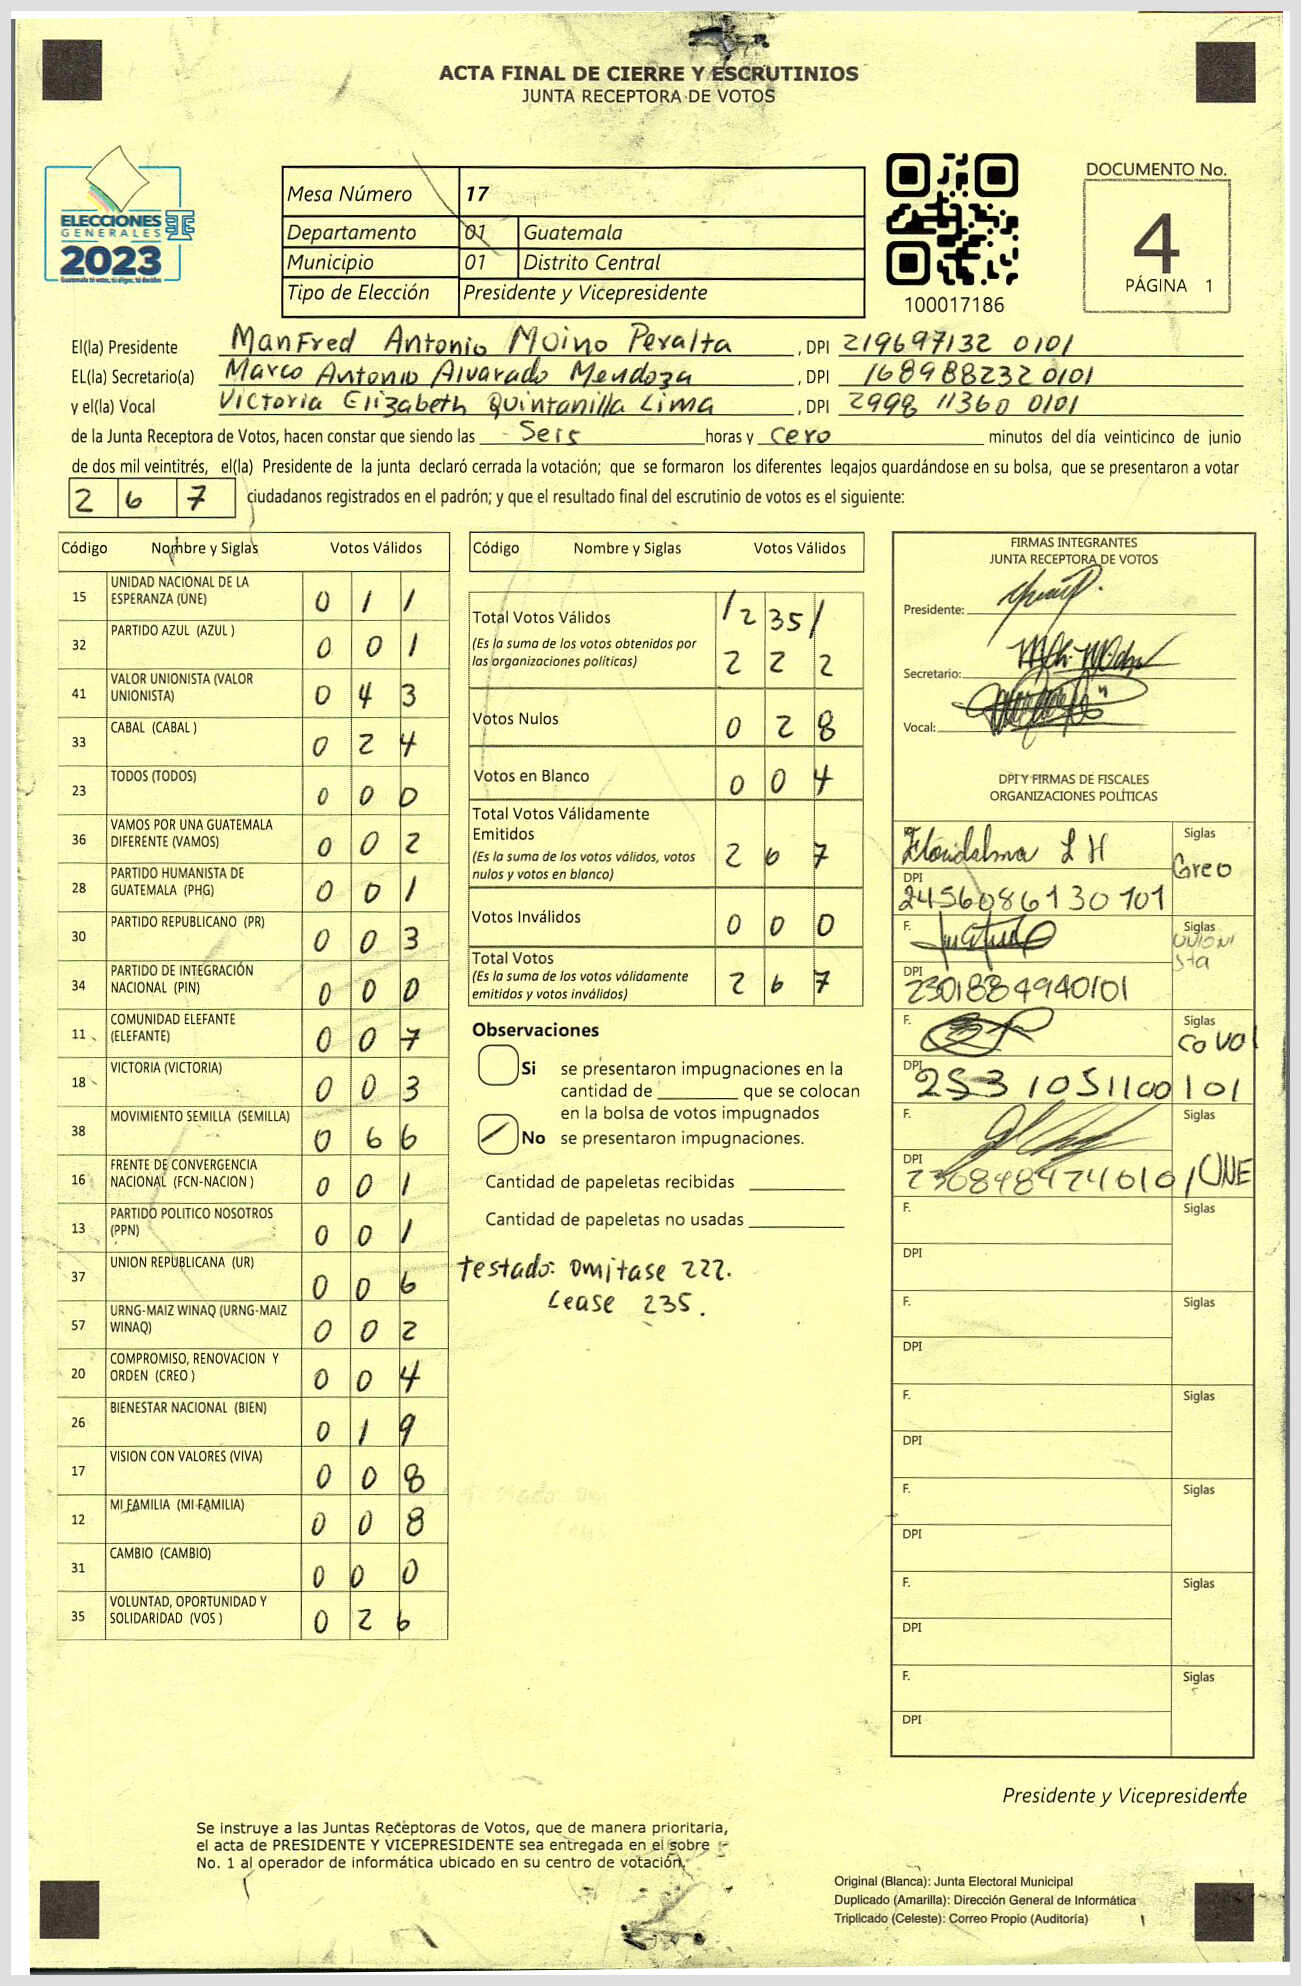 ACTA FINAL DE CIERRE Y ESCRUTINIOS
JUNTA RECEPTORA DE VOTOS
ELECCIONES
GENERALES
2023
Guatemala tú votas, tú eliges, tú decides
Mesa Número 17
Departamento 01 Guatemala
Municipio 01 Distrito Central
Tipo de Elección Presidente y Vicepresidente
100017186
DOCUMENTO No.
4
PÁGINA 1
El(la) Presidente Manfred Antonio Moino Peralta, DPI 219697132 0101
EL(la) Secretario(a) Marco Antonio Alvarado Mendoza, DPI 168988232 0101
y el(la) Vocal Victoria Elizabeth Quintanilla Lima, DPI 2998 11360 0101
de la Junta Receptora de Votos, hacen constar que siendo las Seis horas y cero minutos del día veinticinco de junio
de dos mil veintitrés, el(la) Presidente de la junta declaró cerrada la votación; que se formaron los diferentes legajos guardándose en su bolsa, que se presentaron a votar
2 6 7 ciudadanos registrados en el padrón; y que el resultado final del escrutinio de votos es el siguiente:
Código Nombre y Siglas Votos Válidos
15 UNIDAD NACIONAL DE LA ESPERANZA (UNE) 0 1 1
32 PARTIDO AZUL (AZUL ) 0 0 1
41 VALOR UNIONISTA (VALOR UNIONISTA) 0 4 3
33 CABAL (CABAL ) 0 2 4
23 TODOS (TODOS) 0 0 0
36 VAMOS POR UNA GUATEMALA DIFERENTE (VAMOS) 0 0 2
28 PARTIDO HUMANISTA DE GUATEMALA (PHG) 0 0 1
30 PARTIDO REPUBLICANO (PR) 0 0 3
34 PARTIDO DE INTEGRACIÓN NACIONAL (PIN) 0 0 0
11 COMUNIDAD ELEFANTE (ELEFANTE) 0 0 7
18 VICTORIA (VICTORIA) 0 0 3
38 MOVIMIENTO SEMILLA (SEMILLA) 0 6 6
16 FRENTE DE CONVERGENCIA NACIONAL (FCN-NACION ) 0 0 1
13 PARTIDO POLITICO NOSOTROS (PPN) 0 0 1
37 UNION REPUBLICANA (UR) 0 0 6
57 URNG-MAIZ WINAQ (URNG-MAIZ WINAQ) 0 0 2
20 COMPROMISO, RENOVACION Y ORDEN (CREO ) 0 0 4
26 BIENESTAR NACIONAL (BIEN) 0 1 9
17 VISION CON VALORES (VIVA) 0 0 8
12 MI FAMILIA (MI FAMILIA) 0 0 8
31 CAMBIO (CAMBIO) 0 0 0
35 VOLUNTAD, OPORTUNIDAD Y SOLIDARIDAD (VOS ) 0 2 6
Código Nombre y Siglas Votos Válidos
Total Votos Válidos /235/
(Es la suma de los votos obtenidos por
las organizaciones políticas) 2 2 2
Votos Nulos 0 2 8
Votos en Blanco 0 0 4
Total Votos Válidamente
Emitidos
(Es la suma de los votos válidos, votos
nulos y votos en blanco) 2 6 7
Votos Inválidos 0 0 0
Total Votos
(Es la suma de los votos válidamente
emitidos y votos inválidos) 2 6 7
Observaciones
Si se presentaron impugnaciones en la
cantidad de ________ que se colocan
en la bolsa de votos impugnados
No se presentaron impugnaciones.
Cantidad de papeletas recibidas
Cantidad de papeletas no usadas
testado: omitase 222.
Lease 235.
FIRMAS INTEGRANTES
JUNTA RECEPTORA DE VOTOS
Presidente:
Secretario:
Vocal:
DPI Y FIRMAS DE FISCALES
ORGANIZACIONES POLÍTICAS
Floridalma L H Siglas
Creo
DPI
2456086130101
F. Siglas
Unioni
sta
DPI
2301884940101
F. Siglas
DPI
2531051100101
F. Siglas
DPI
UNE
F. Siglas
DPI
F. Siglas
DPI
F. Siglas
DPI
F. Siglas
DPI
F. Siglas
DPI
F. Siglas
DPI
Presidente y Vicepresidente
Se instruye a las Juntas Receptoras de Votos, que de manera prioritaria,
el acta de PRESIDENTE Y VICEPRESIDENTE sea entregada en el sobre
No. 1 al operador de informática ubicado en su centro de votación.
Original (Blanca): Junta Electoral Municipal
Duplicado (Amarilla): Dirección General de Informática
Triplicado (Celeste): Correo Propio (Auditoría)